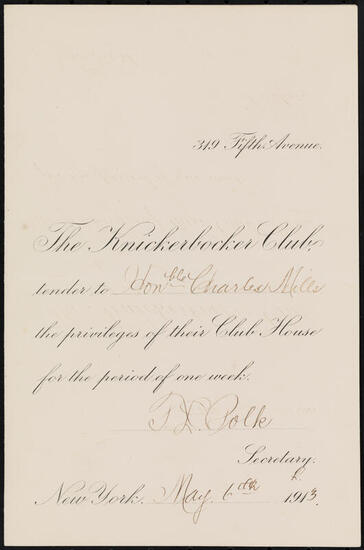 319 Fifth Avenue.
The Knickerbocker Club,
tender to Hon.ble Charles Mills
the privileges of their Club House
for the period of one week.
Polk
Secretary.
New York. May 6th 1913.